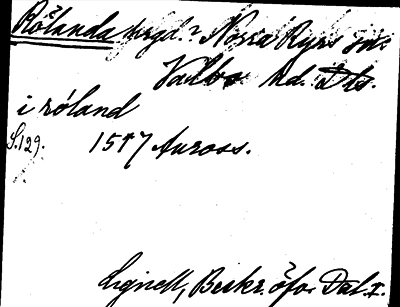 Rölanda hrgd.? Norra Ryrs sn.
Valbo hd. Dls.
i róland
S.129. 1547 Auross.
Lignell, Beskr. öfv. Dal. I.